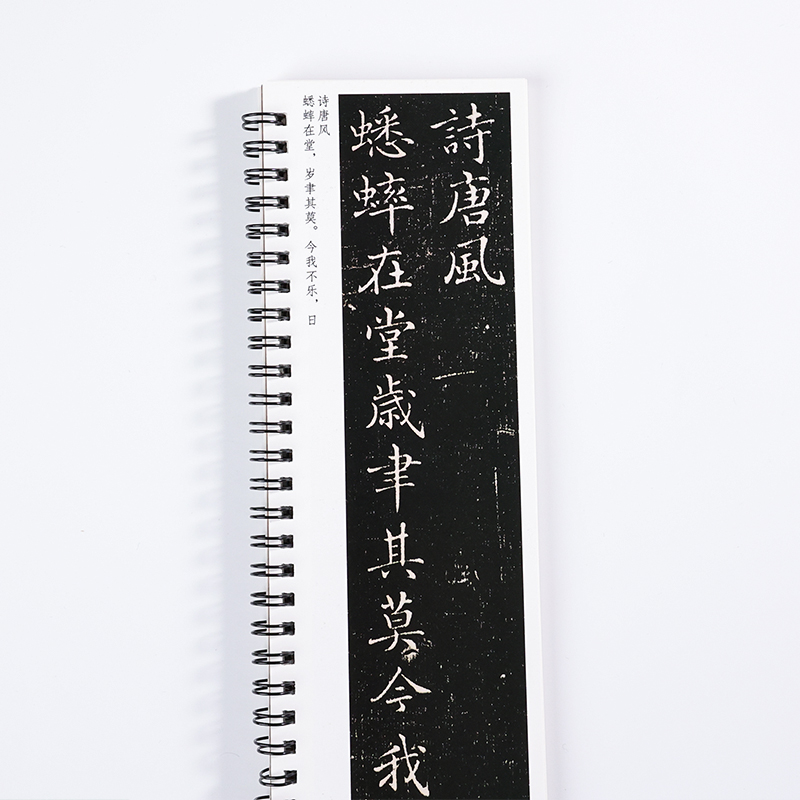 詩唐風
蟋蟀在堂歳聿其莫今我
诗唐风
蟋蟀在堂，岁聿其莫。今我不乐，日